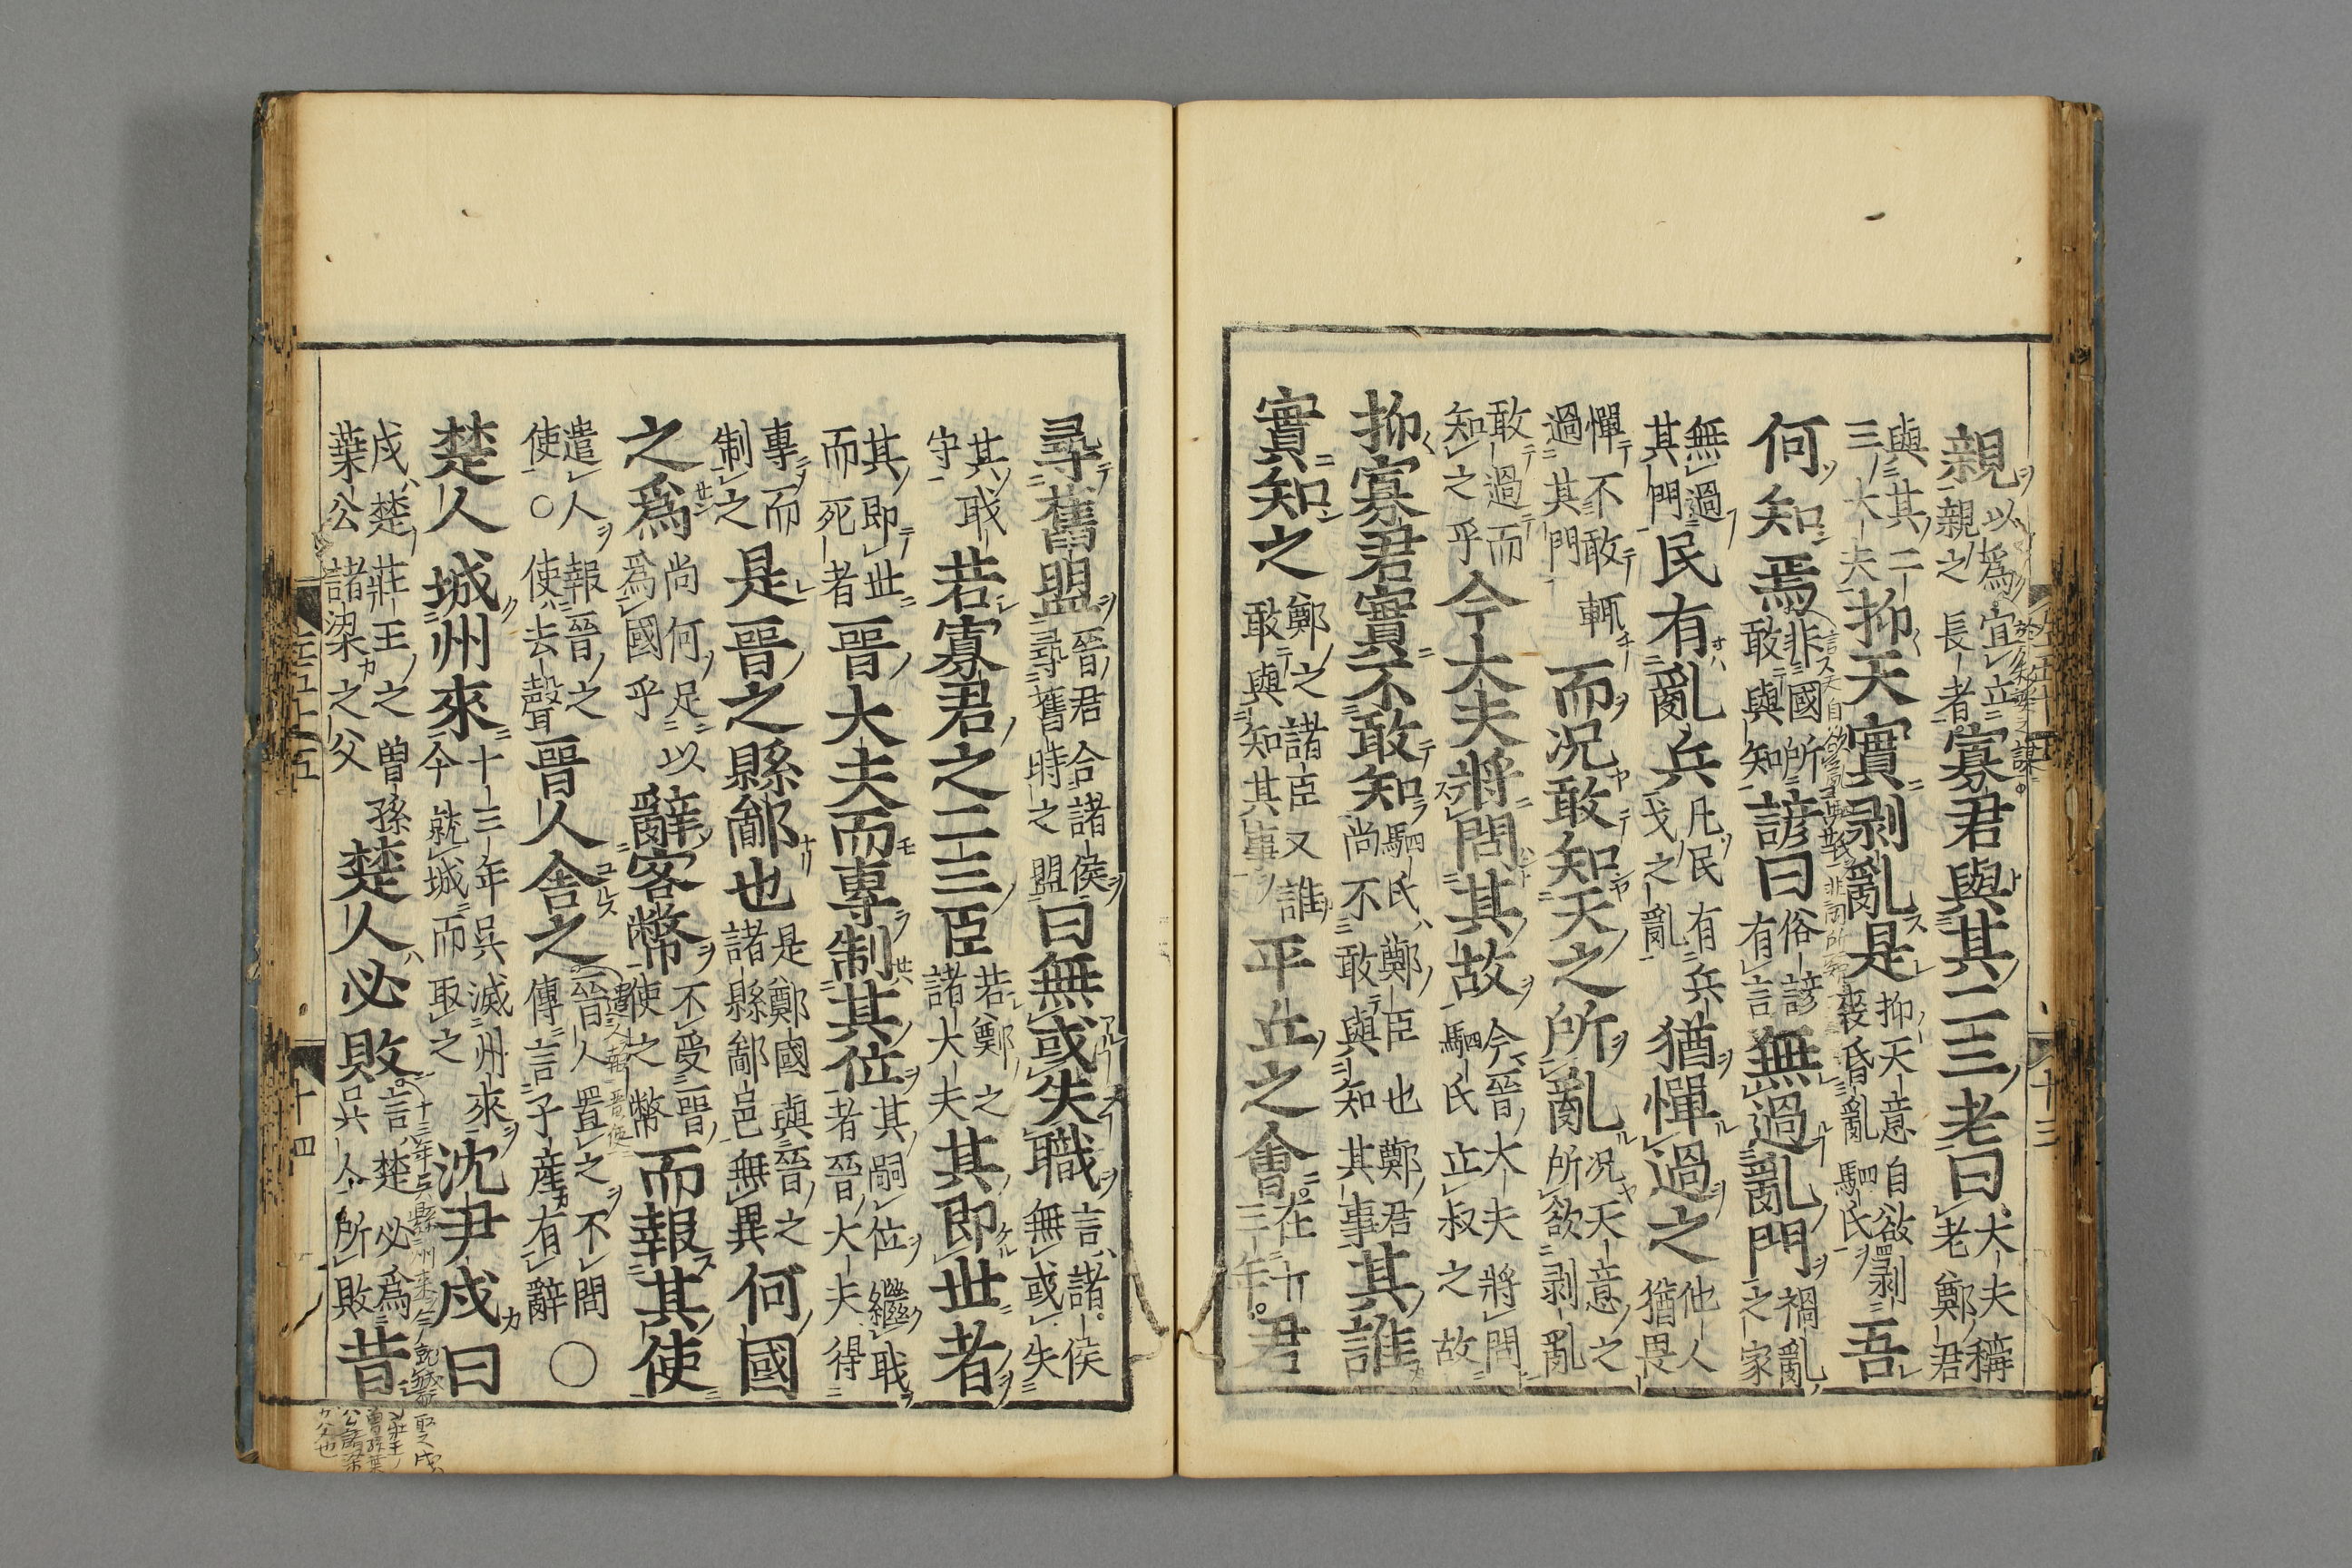 親以爲宜立親親之長者寡君與其二三老曰大夫稱老鄭君
與其二三大夫抑天實剥亂是抑天意自欲剥喪昏亂駟氏吾
何知焉非國所敢與知諺曰俗諺有言無過亂門禍亂之家
無過其門民有亂兵凡民有兵戈之亂猶憚過之他人猶畏
憚不敢輒過其門而况敢知天之所亂况天意之所欲剥亂
敢過而知之乎今大夫將問其故今晉大夫將問駟氏立叔之故
抑寡君實不敢知駟氏鄭臣也鄭君尚不敢與知其事其誰
實知之鄭之諸臣又誰敢與知其事平丘之會在十三年君
十三
尋舊盟晉君合諸侯尋舊時之盟曰無或失職言諸侯無或失
其職守若寡君之二三臣若鄭之諸大夫其即世者
其即世而死者晉大夫而專制其位其嗣位繼職者晉大夫得
專而制之是晉之縣鄙也是鄭國與晉之諸縣鄙邑無異何國
之爲尚何足以爲國乎辭客幣不受晉使之幣而報其使
遣人報晉之使○使去聲晉人舍之晉人置之不問傳言子產有辭○
楚人城州來十三年吳滅州來今就城而取之沈尹戌曰
戌楚莊王之曾孫葉公諸梁之父楚人必敗言楚必爲吳人所敗昔
十四